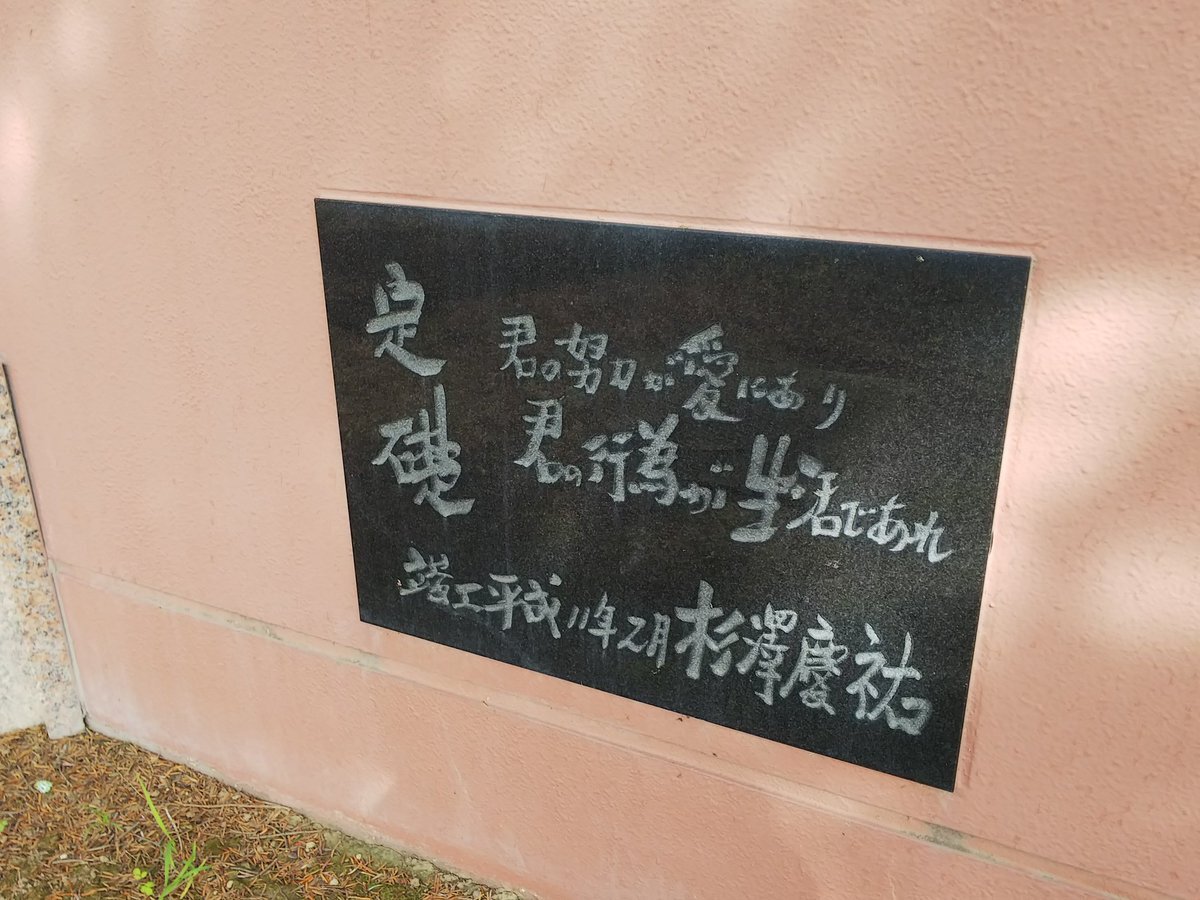 定礎
君の努力が愛にあり
君の行為が生活であれ
竣工平成11年2月 杉澤慶祐